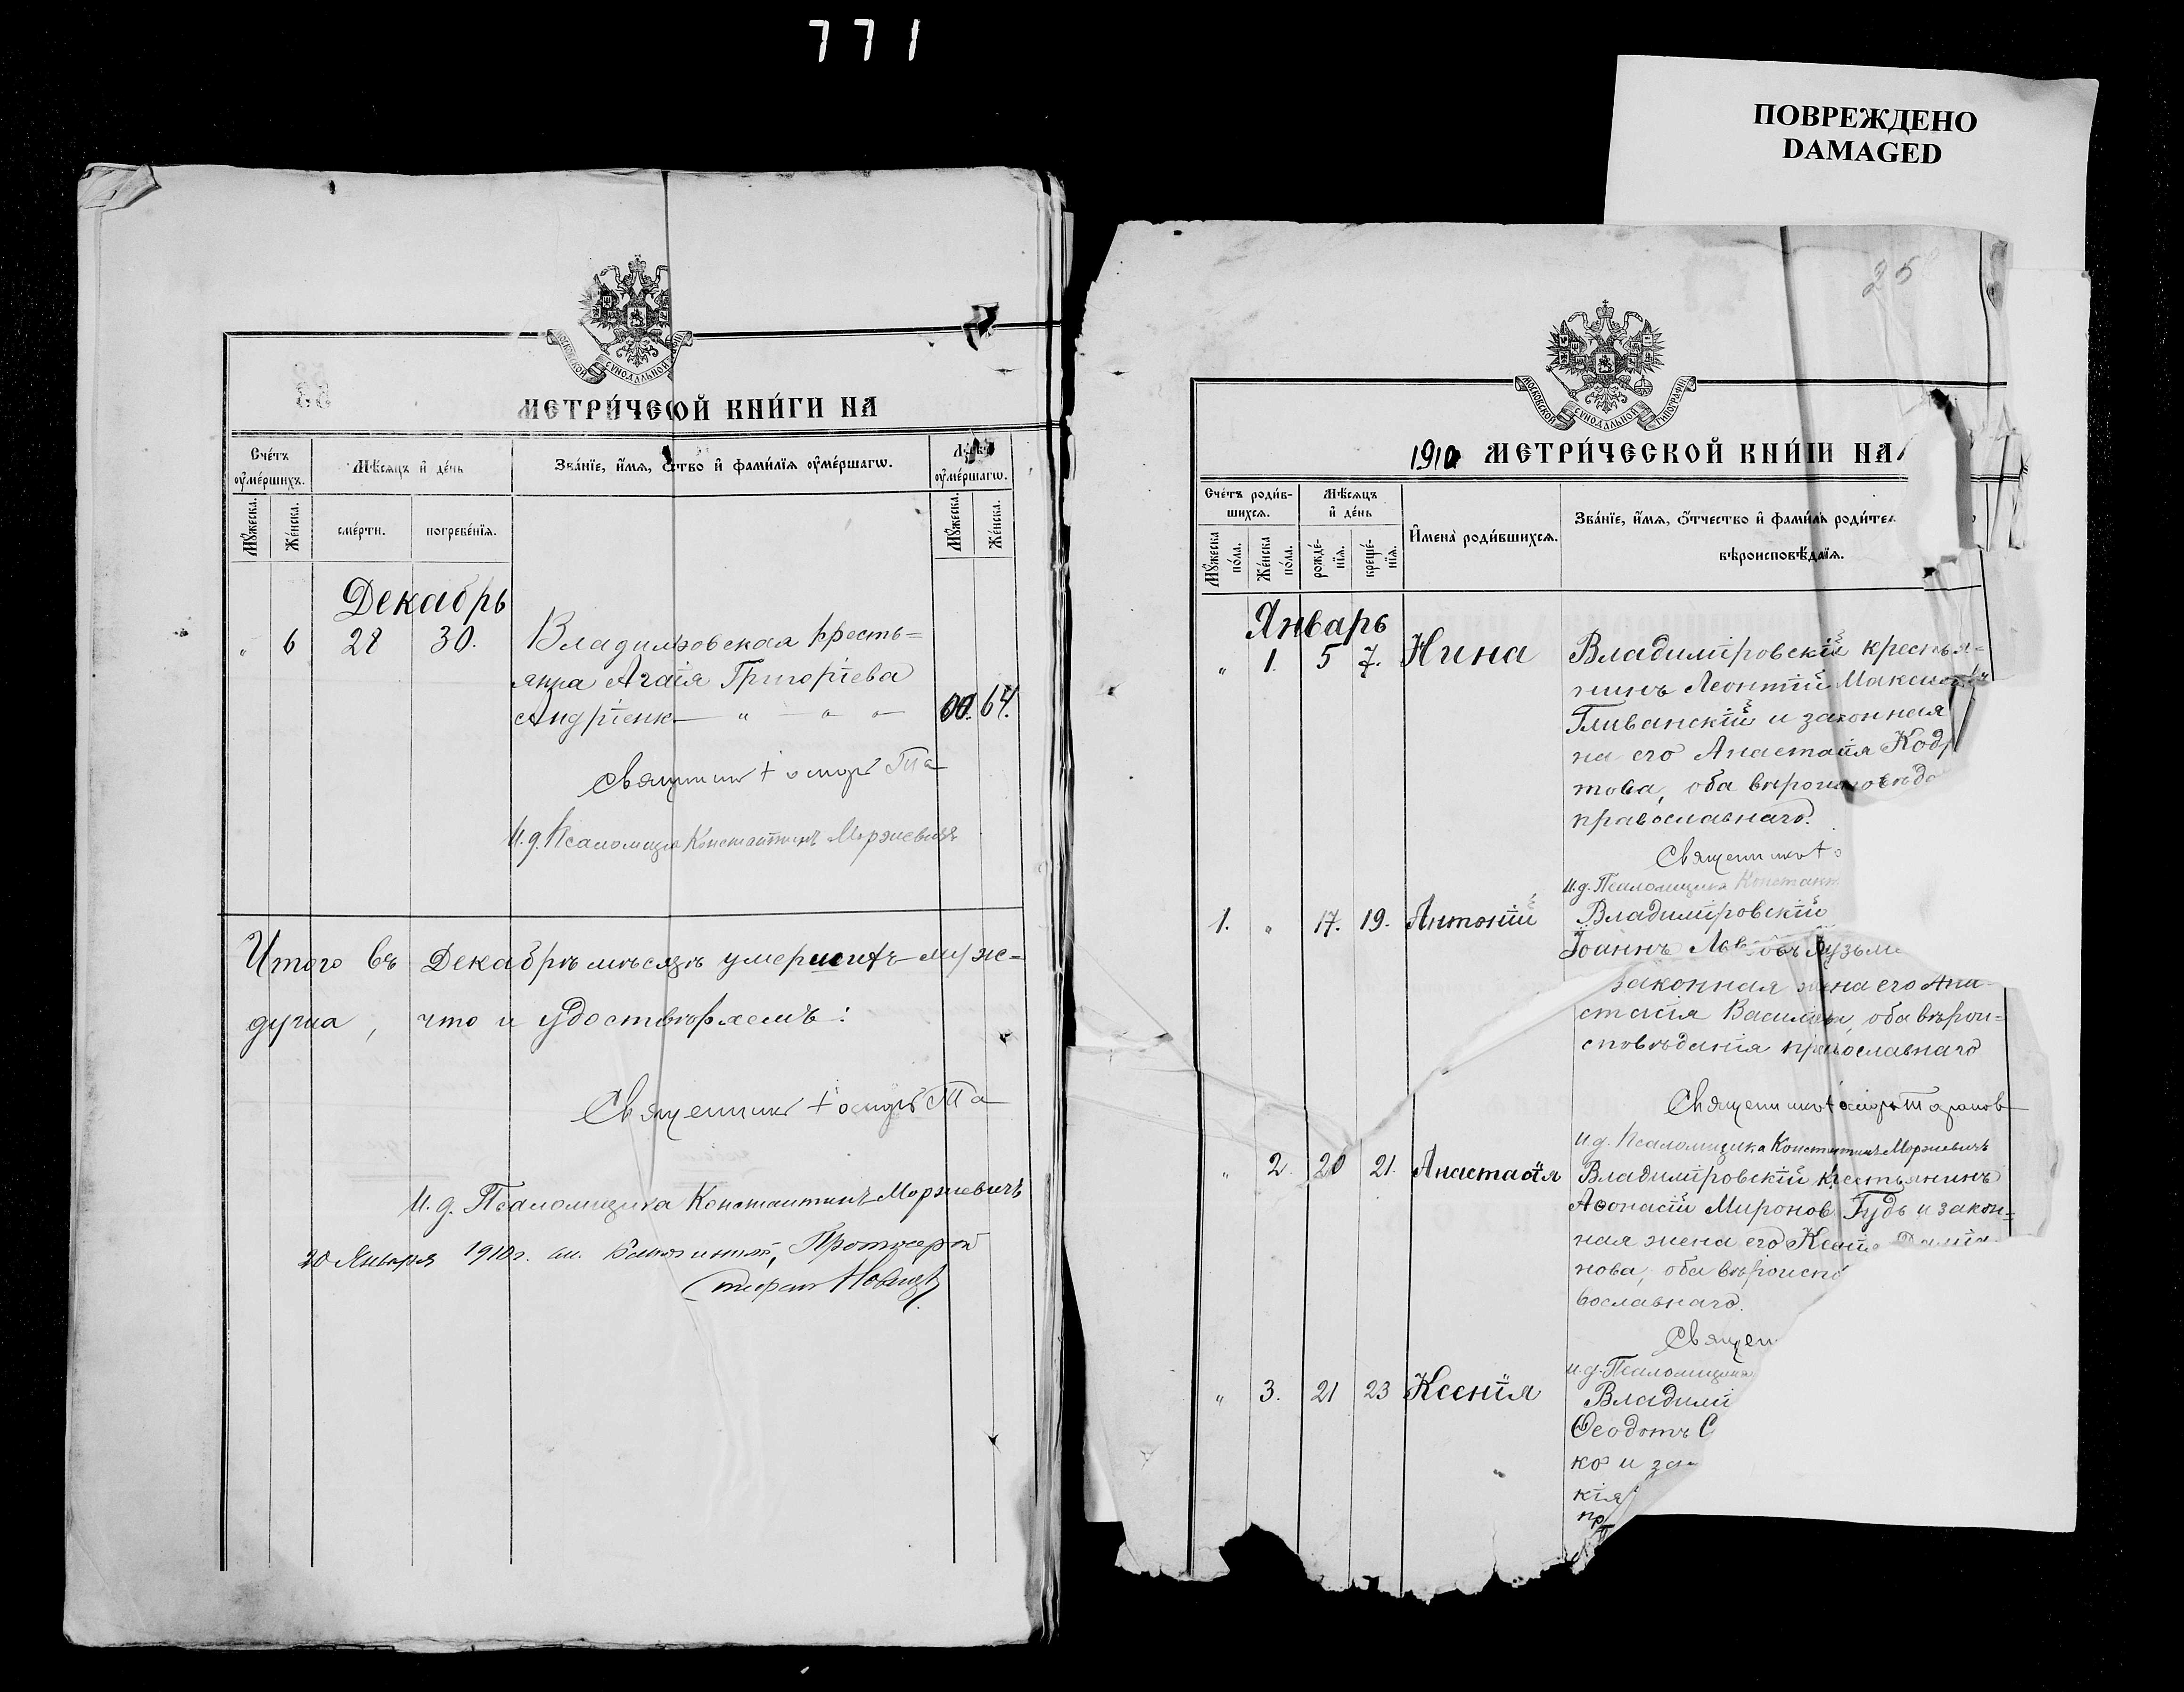 771
ПОВРЕЖДЕНО
DAMAGED
МЕТРИ́ЧЕСКОЙ КНИ́ГИ НА
Сче́тъ
ᲂу҆ме́ршихъ.
Мѣ́сѧцъ и҆ де́нь
Зва́нїе, и҆́мѧ, ѻ҆́тчество и҆ фами́лїѧ ᲂу҆ме́ршагѡ.
ᲂу҆ме́ршагѡ.
Мꙋ́жеска.
Же́нска.
сме́рти.
погребе́нїѧ.
Мꙋ́жеска.
Же́нска.
Декабрь
" 6 28 30. Владимировская кресть=
янка Агаѳія Григоріева
Андріенко — " — " — " 64.
Священникъ
И.д. Псаломщика Константинъ Моржевичъ
Итого въ Декабрѣ мѣсяцѣ умершихъ муж=
душа, что и удостовѣряемъ:
Священникъ
И.д. Псаломщика Константинъ Моржевичъ
20 Января 1910 г. Протоіерей
Стефанъ
25
МОСКОВСКОЙ СѴНОДАЛЬНОЙ ТИПОГРАФІИ
1910 МЕТРИ́ЧЕСКОЙ КНИ́ГИ НА
Сче́тъ роди́в-
шихсѧ.
Мѣ́сѧцъ
и҆ де́нь
И҆мена̀ роди́вшихсѧ.
Зва́нїе, и҆́мѧ, ѻ҆́тчество и҆ фами́лїѧ роди́те
вѣроисповѣ́данїѧ.
Мꙋ́жеска
по́ла.
Же́нска
по́ла.
рожде́-
нїѧ.
креще́-
нїѧ.
Январь
" 1. 5 7. Нина Владимировскій крестья=
нинъ Леонтій Максимовъ
Гливанскій и законная
на его Анастасія Кодр
това, оба вѣроисповѣда
православнаго.
Священникъ
И.д. Псаломщика Констант
1. " 17. 19. Антоній Владимировскій
Іоаннъ Кузьме
законная жена его Ана
стасія Васильева, оба вѣрои=
сповѣданія православнаго
Священникъ
И.д. Псаломщика Константинъ Моржевичъ
" 2. 20 21. Анастасія Владимировскій крестьянинъ
Аѳонасій Мироновъ Гудь и закон=
ная жена его Ксенія Даміа
нова, оба вѣроиспо
вославнаго.
Священ
И.д. Псаломщика
" 3. 21 23 Ксенія Владимі
Ѳеодотъ С
ко и за
кія
пр